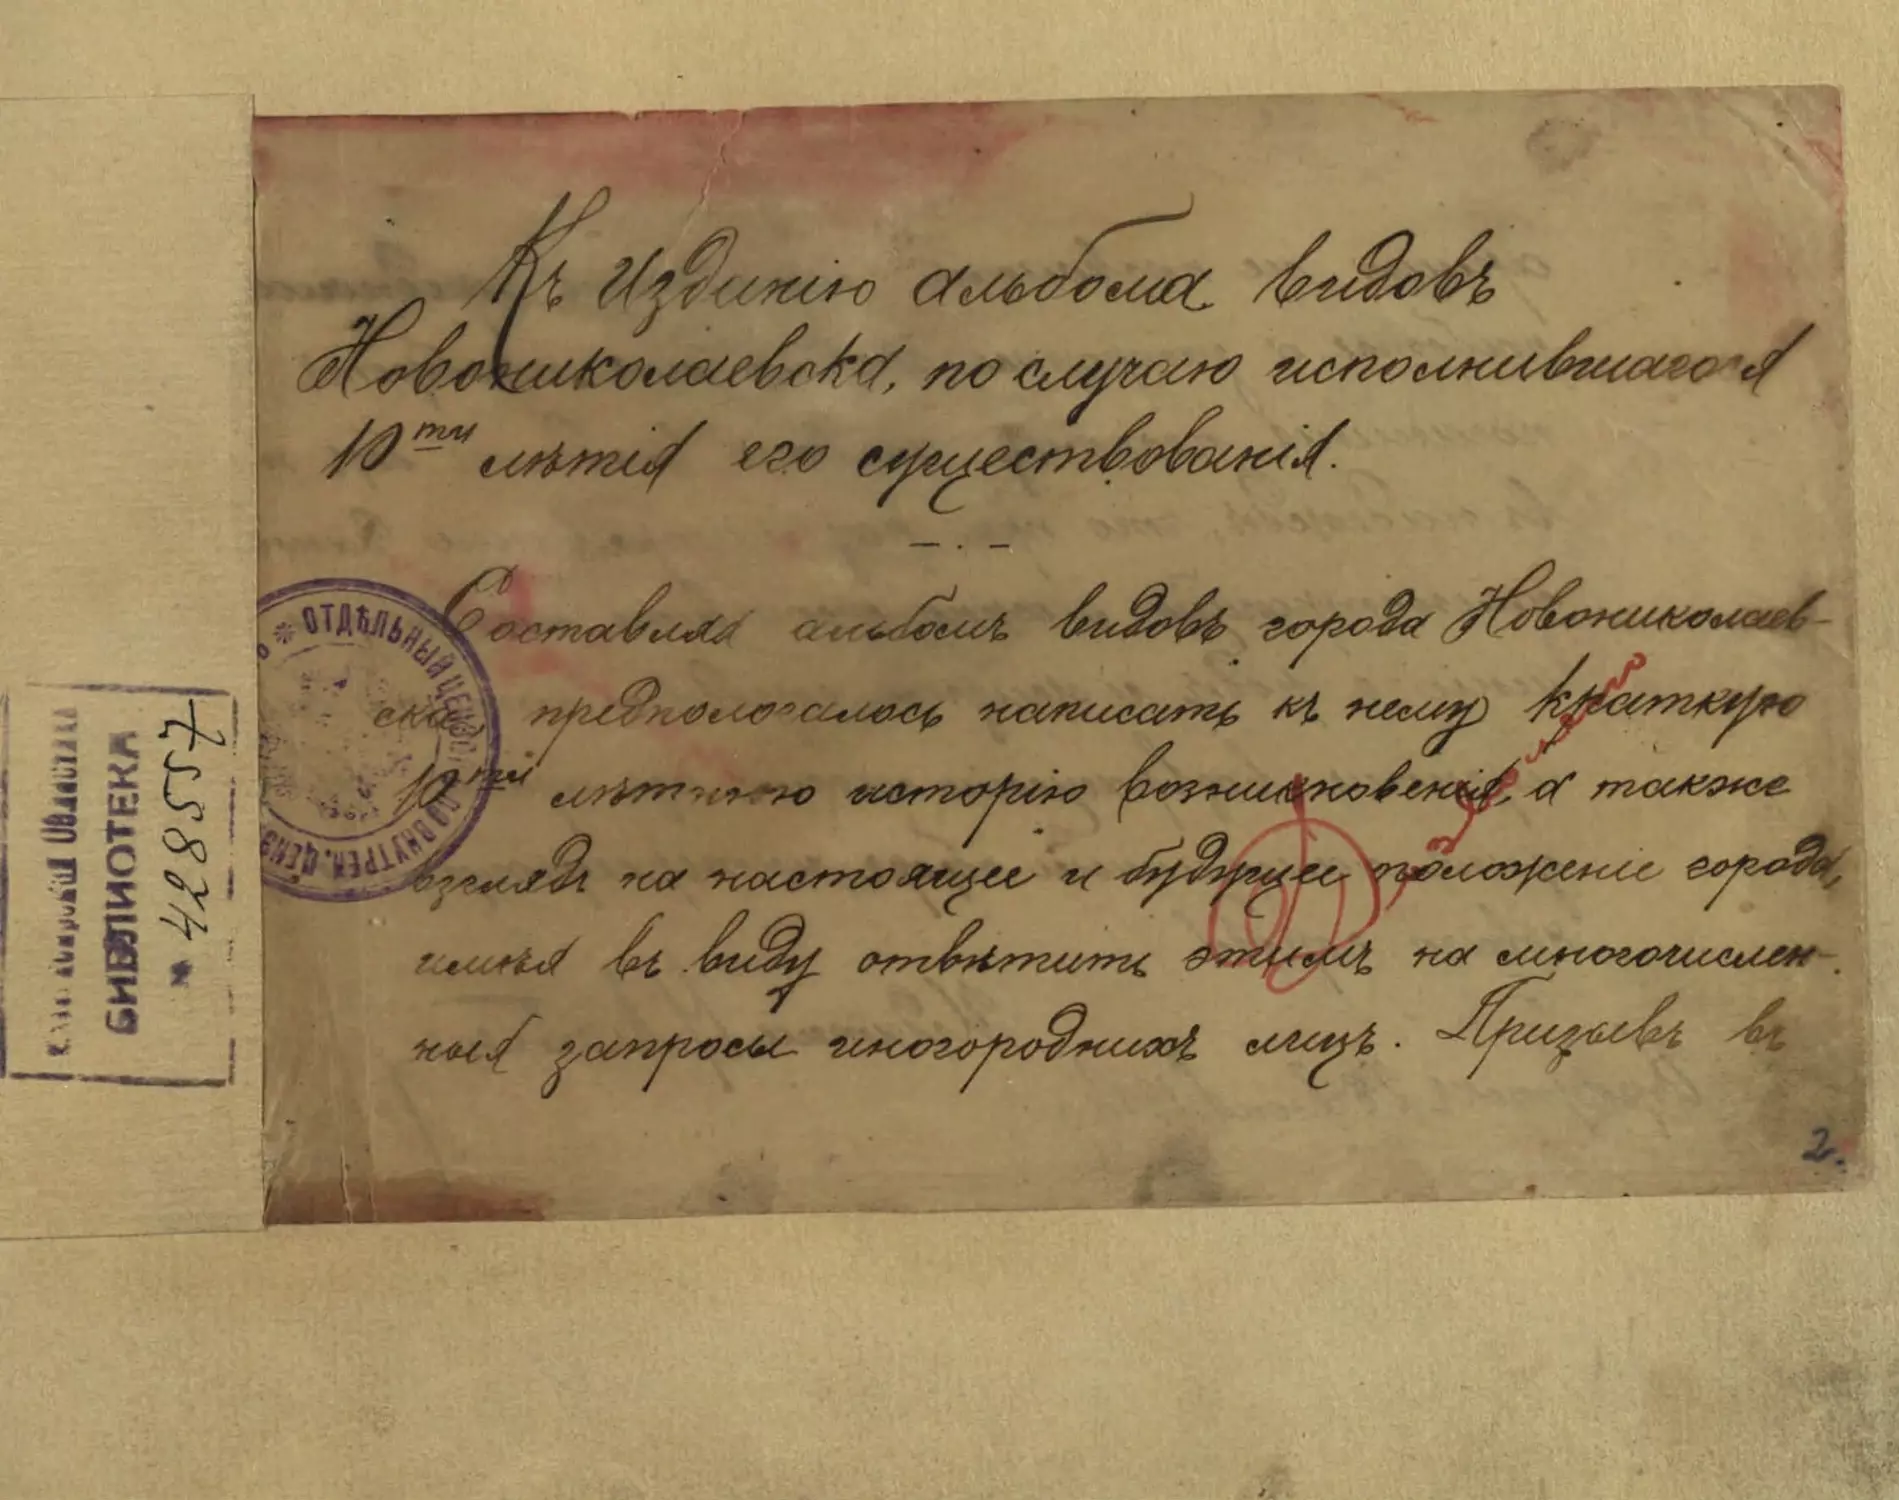 Къ изданію альбома видовъ
Новониколаевска, по случаю исполнившагося
10ти лѣтія его существованія.
Составляя альбомъ видовъ города Новониколаев-
ска, предпологалось написать къ нему краткую
10ти лѣтнюю исторію возникновенія, а также
взглядъ на настоящее и будущее положеніе города,
имѣя въ виду отвѣтить этимъ на многочислен-
ныя запросы иногородныхъ лицъ. Призывъ въ
2.
* ОТДѢЛЬНЫЙ ЦЕНЗОРЪ ПО ВНУТРЕН. ЦЕНЗ
БИБЛИОТЕКА
№ 428557